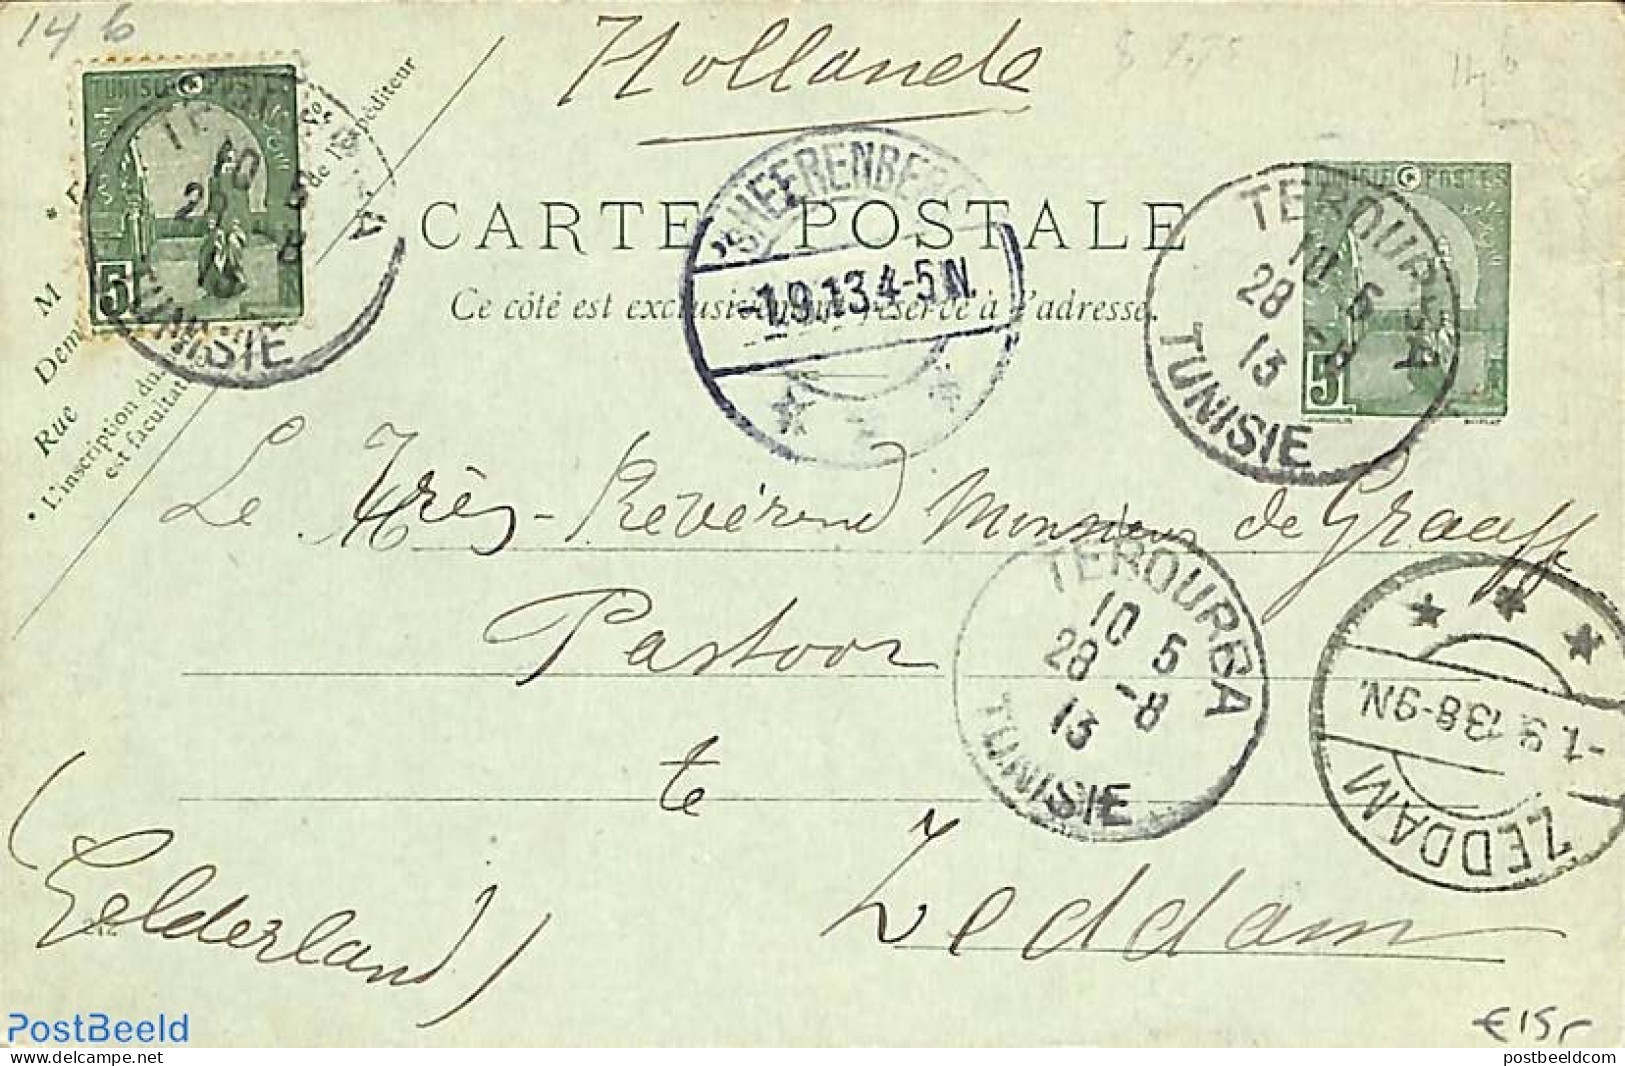 14 6
Hollande
$ 2,75
14 6
TUNISIE POSTES
5
TUNISIE
CARTE POSTALE
Ce côté est exclusivement réservé à l'adresse.
'S HEERENBERG
-1.9.13 4-5 N.
TEROURBA
10 5
28 -8
13
TUNISIE
TUNISIE POSTES
5
de l'expéditeur
M
Dem
Rue
* L'inscription du
est facultat
Le Très-Révérend Monsieur de Graaff
Pastoor
te
Zeddam
(Gelderland)
TEROURBA
10 5
28 -8
13
TUNISIE
ZEDDAM
-1.9.13 8-9 N.
€15,-
PostBeeld
postbeeldcom